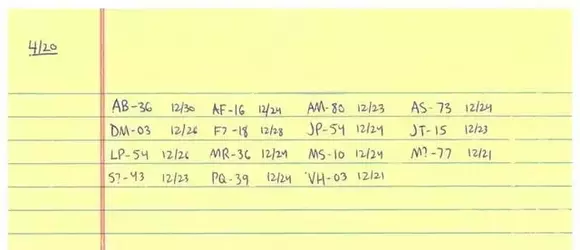 4/20
AB-36 12/30 AF-16 12/24 AM-80 12/23 AS-73 12/24
DM-03 12/26 F?-18 12/28 JP-54 12/24 JT-15 12/23
LP-54 12/26 MR-36 12/24 MS-10 12/24 M?-77 12/21
S?-43 12/23 PQ-39 12/24 VH-03 12/21